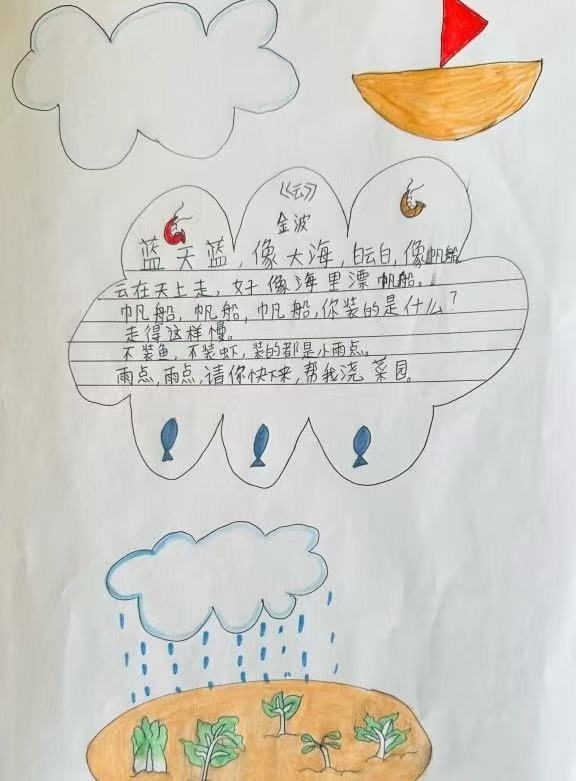 《云》
金波
蓝天蓝,像大海,白云白,像帆船
云在天上走,好像海里漂帆船。
帆船,帆船,帆船,你装的是什么?
走得这样慢。
不装鱼,不装虾,装的都是小雨点。
雨点,雨点,请你快下来,帮我浇菜园。